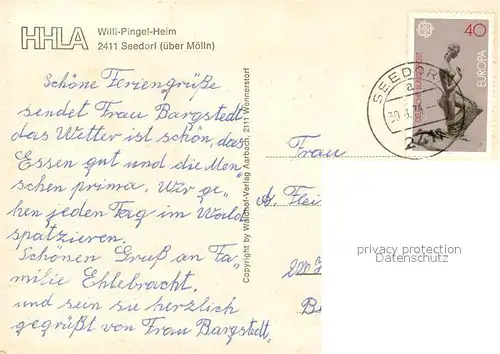 HHLA
Willi-Pingel-Heim
2411 Seedorf (über Mölln)
Schöne Feriengrüße
sendet Frau Bargstedt
das Wetter ist schön, das
Essen gut und die Men-
schen prima. Wir ge-
hen jeden Tag im Wald
spatzieren.
Schönen Gruß an Fa-
milie Ehlebracht.
und sein sie herzlich
gegrüßt von Frau Bargstedt.
Copyright by Waldhof-Verlag Aarbach, 2111 Wennerstorf
40
EUROPA
SEEDOR
Frau
A. Flei
privacy protection
Datenschutz